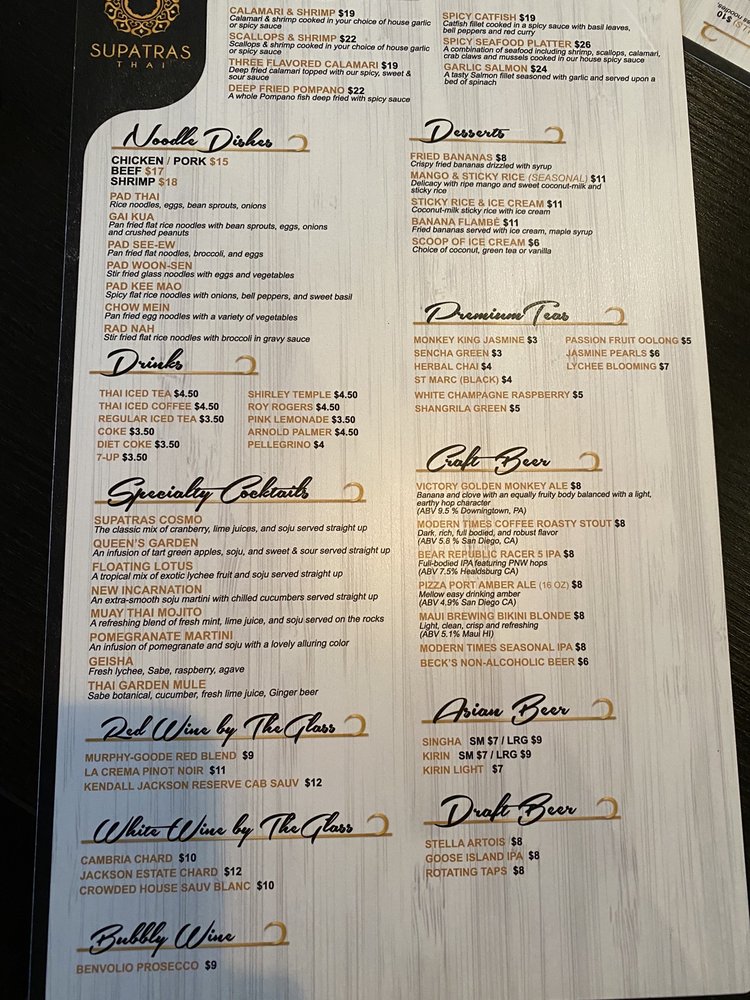 SUPATRAS
THAI
CALAMARI & SHRIMP $19
Calamari & shrimp cooked in your choice of house garlic
or spicy sauce
SCALLOPS & SHRIMP $22
Scallops & shrimp cooked in your choice of house garlic
or spicy sauce
THREE FLAVORED CALAMARI $19
Deep fried calamari topped with our spicy, sweet &
sour sauce
DEEP FRIED POMPANO $22
A whole Pompano fish deep fried with spicy sauce
SPICY CATFISH $19
Catfish fillet cooked in a spicy sauce with basil leaves,
bell peppers and red curry
SPICY SEAFOOD PLATTER $26
A combination of seafood including shrimp, scallops, calamari,
crab claws and mussels cooked in our house spicy sauce
GARLIC SALMON $24
A tasty Salmon fillet seasoned with garlic and served upon a
bed of spinach
$10
Noodle Dishes
CHICKEN / PORK $15
BEEF $17
SHRIMP $18
PAD THAI
Rice noodles, eggs, bean sprouts, onions
GAI KUA
Pan fried flat rice noodles with bean sprouts, eggs, onions
and crushed peanuts
PAD SEE-EW
Pan fried flat noodles, broccoli, and eggs
PAD WOON-SEN
Stir fried glass noodles with eggs and vegetables
PAD KEE MAO
Spicy flat rice noodles with onions, bell peppers, and sweet basil
CHOW MEIN
Pan fried egg noodles with a variety of vegetables
RAD NAH
Stir fried flat rice noodles with broccoli in gravy sauce
Drinks
THAI ICED TEA $4.50
THAI ICED COFFEE $4.50
REGULAR ICED TEA $3.50
COKE $3.50
DIET COKE $3.50
7-UP $3.50
SHIRLEY TEMPLE $4.50
ROY ROGERS $4.50
PINK LEMONADE $3.50
ARNOLD PALMER $4.50
PELLEGRINO $4
Specialty Cocktails
SUPATRAS COSMO
The classic mix of cranberry, lime juices, and soju served straight up
QUEEN'S GARDEN
An infusion of tart green apples, soju, and sweet & sour served straight up
FLOATING LOTUS
A tropical mix of exotic lychee fruit and soju served straight up
NEW INCARNATION
An extra-smooth soju martini with chilled cucumbers served straight up
MUAY THAI MOJITO
A refreshing blend of fresh mint, lime juice, and soju served on the rocks
POMEGRANATE MARTINI
An infusion of pomegranate and soju with a lovely alluring color
GEISHA
Fresh lychee, Sabe, raspberry, agave
THAI GARDEN MULE
Sabe botanical, cucumber, fresh lime juice, Ginger beer
Red Wine by The Glass
MURPHY-GOODE RED BLEND $9
LA CREMA PINOT NOIR $11
KENDALL JACKSON RESERVE CAB SAUV $12
White Wine by The Glass
CAMBRIA CHARD $10
JACKSON ESTATE CHARD $12
CROWDED HOUSE SAUV BLANC $10
Bubbly Wine
BENVOLIO PROSECCO $9
Desserts
FRIED BANANAS $8
Crispy fried bananas drizzled with syrup
MANGO & STICKY RICE (SEASONAL) $11
Delicacy with ripe mango and sweet coconut-milk and
sticky rice
STICKY RICE & ICE CREAM $11
Coconut-milk sticky rice with ice cream
BANANA FLAMBÉ $11
Fried bananas served with ice cream, maple syrup
SCOOP OF ICE CREAM $6
Choice of coconut, green tea or vanilla
Premium Teas
MONKEY KING JASMINE $3
SENCHA GREEN $3
HERBAL CHAI $4
ST MARC (BLACK) $4
WHITE CHAMPAGNE RASPBERRY $5
SHANGRILA GREEN $5
PASSION FRUIT OOLONG $5
JASMINE PEARLS $6
LYCHEE BLOOMING $7
Craft Beer
VICTORY GOLDEN MONKEY ALE $8
Banana and clove with an equally fruity body balanced with a light,
earthy hop character
(ABV 9.5 % Downingtown, PA)
MODERN TIMES COFFEE ROASTY STOUT $8
Dark, rich, full bodied, and robust flavor
(ABV 5.8 % San Diego, CA)
BEAR REPUBLIC RACER 5 IPA $8
Full-bodied IPA featuring PNW hops
(ABV 7.5% Healdsburg CA)
PIZZA PORT AMBER ALE (16 OZ) $8
Mellow easy drinking amber
(ABV 4.9% San Diego CA)
MAUI BREWING BIKINI BLONDE $8
Light, clean, crisp and refreshing
(ABV 5.1% Maui HI)
MODERN TIMES SEASONAL IPA $8
BECK'S NON-ALCOHOLIC BEER $6
Asian Beer
SINGHA SM $7 / LRG $9
KIRIN SM $7 / LRG $9
KIRIN LIGHT $7
Draft Beer
STELLA ARTOIS $8
GOOSE ISLAND IPA $8
ROTATING TAPS $8